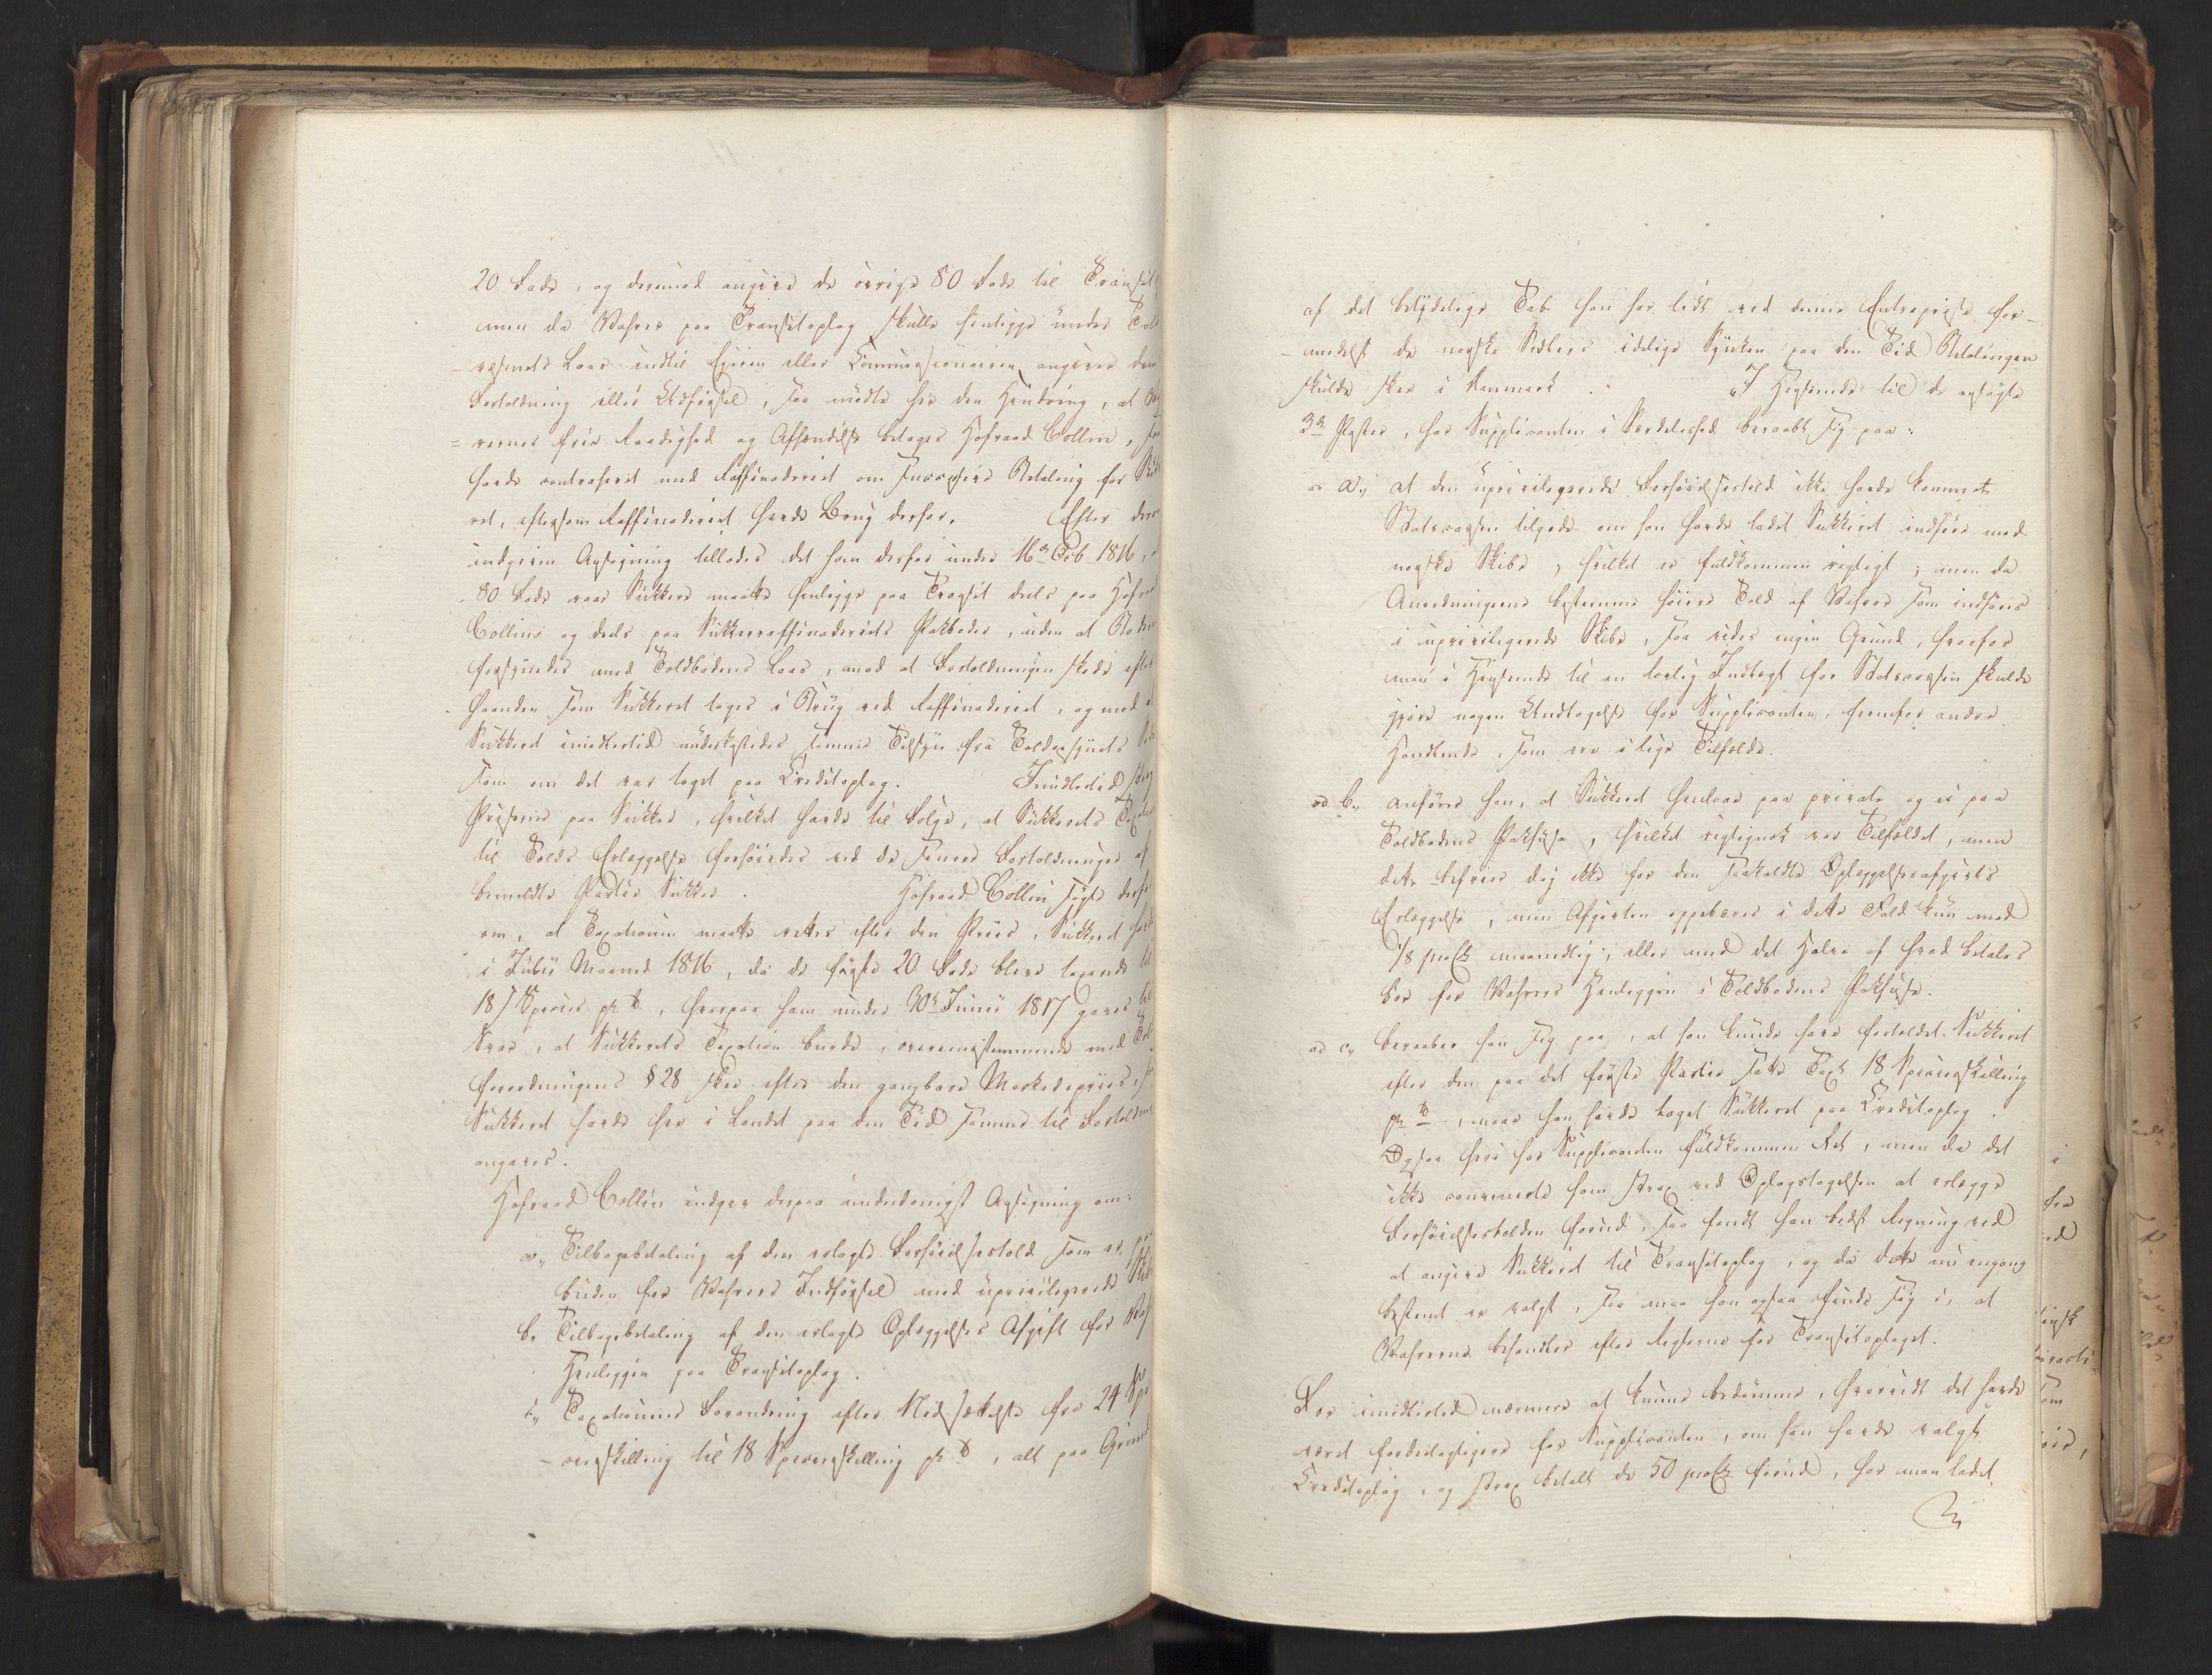 20 Fade, og derimod angive de øvrige 80 Fade til Transit,
men da Vahrer paa Transitoplag skulle henligge under Told
-væsenets Laas indtil Ejeren eller Commissionairen angiver dem
Fortoldning eller Udførsel, saa mødte her den Hindring, at
=rernes frie Raadighed og Afhændelse betoges Hofraad Collin,
havde contraheret med Raffinaderiet om successive Betaling for
ret, eftersom Raffinaderiet havde Brug derfor. Efter
indgiven Ansøgning tillodes det ham derfor under 16de Feb 1816,
80 Fade raae Sukkere maatte henligge paa Transit deels paa Hofraad
Collins og deels paa Sukkerraffinaderiets Pakboder, uden at
forsynedes med Toldbodens Laas, mod at Fortoldningen skede efter
haanden som Sukkeret toges i Brug ved Raffinaderiet, og mod at
Sukkeret imidlertid underkastedes samme Tilsyn fra Toldopsynets
som om det var taget paa Creditoplag. Imidlertid steg
Priserne paa Sukker, hvilket havde til Følge, at Sukkerets
til Tolds Erlæggelse forhøiedes ved de senere Fortoldninger af
bemeldte Partie Sukker. Hofraad Collin søgte derfor
om, at Taxationen maatte rettes efter den Priis, Sukkeret havde
i Julii Maaned 1816, da de første 20 Fade bleve taxerede til
18 s Species pr ℔, hvorpaa ham under 30te Junii 1817 gaves til
Svar, at Sukkerets Taxation burde, overeensstemmende med Told
forordningens § 28 skee efter den gangbare Markedspriis,
Sukkeret havde her i Landet paa den Tid samme til Fortoldning
angaves.
Hofraad Collin indgav derpaa underdanigst Ansøgning om:
a, Tilbagebetaling af den erlagte Forhøielsestold som er paa
buden for Vahrers Indførsel med uprivilegerede Skibe
b, Tilbagebetaling af den erlagte Oplæggelses Afgift for
Henliggen paa Transitoplag.
c, Taxationens Forandring efter Nedsættelse fra 24
-cieskilling til 18 Specieskilling pr ℔, alt paa Grund
af det betydelige Tab han har lidt ved denne Entreprise for-
-medelst de norske Sedlers idelige Synken paa den Tid Betalingen
skulde skee i Danmark. I Henseende til de ansøgte
3de Poster, har Supplicanten i Særdeleshed beraabt sig paa:
a, at den uprivilegerede Forhøielsestold ikke havde kommet
Statscassen tilgode om han havde ladet Sukkeret indføre med
norske Skibe, hvilket er fuldkommen rigtigt; men da
Anordningerne bestemme høiere Told af Vahrer som indføres
i uprivilegerede Skibe, saa vides ingen Grund, hvorfor
man i Henseende til en lovlig Indtægt for Statscassen skulde
gjøre nogen Undtagelse for Supplicanten, fremfor andre
Handlende, som ere i lige Tilfælde.
ad b, anfører han, at Sukkeret henlaae paa private og ei paa
Toldbodens Pakhuse, hvilket rigtignok var Tilfældet, men
dette befrier dog ikke for den saakaldte Oplæggelsesafgivts
Erlæggelse, men Afgivten oppebæres i dette Fald kun med
1/8 proCt maanedlig, eller med det Halve af hvad betales
bør for Vahrers Henliggen i Toldbodens Pakhuse.
ad c, beraaber han sig paa, at han kunde have fortoldet Sukkeret
efter den paa det første Partie satte Taxt 18 Specieskilling
pr ℔, naar han havde taget Sukkeret paa Creditoplag.
Ogsaa heri har Supplicanten fuldkommen Ret, men da det
ikke convenerede ham strax ved Oplagstagelsen at erlægge
Forhøielsestolden forud, saa fandt han bedst Regning ved
at angive Sukkeret til Transitoplag, og da dette nu engang
bestemt er valgt, saa maa han ogsaa finde sig i, at
Vahrerne behandles efter Reglerne for Transitoplaget.
For imidlertid nærmere at kunne bedømme, hvorvidt det havde
været fordeelagtigere for Supplicanten, om han havde valgt
Creditoplag, og strax betalt de 50 proCt forud, har man ladet